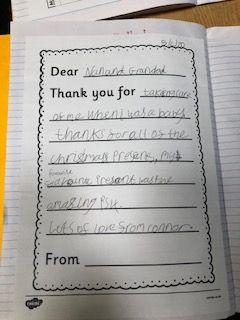 Dear Nan and Grandad
Thank you for taking care
of me when I was a baby
thanks for all of the
christmas Presents, my
favourite Present was the
amazing PS4.
Lots of love from connor
From
twinkl